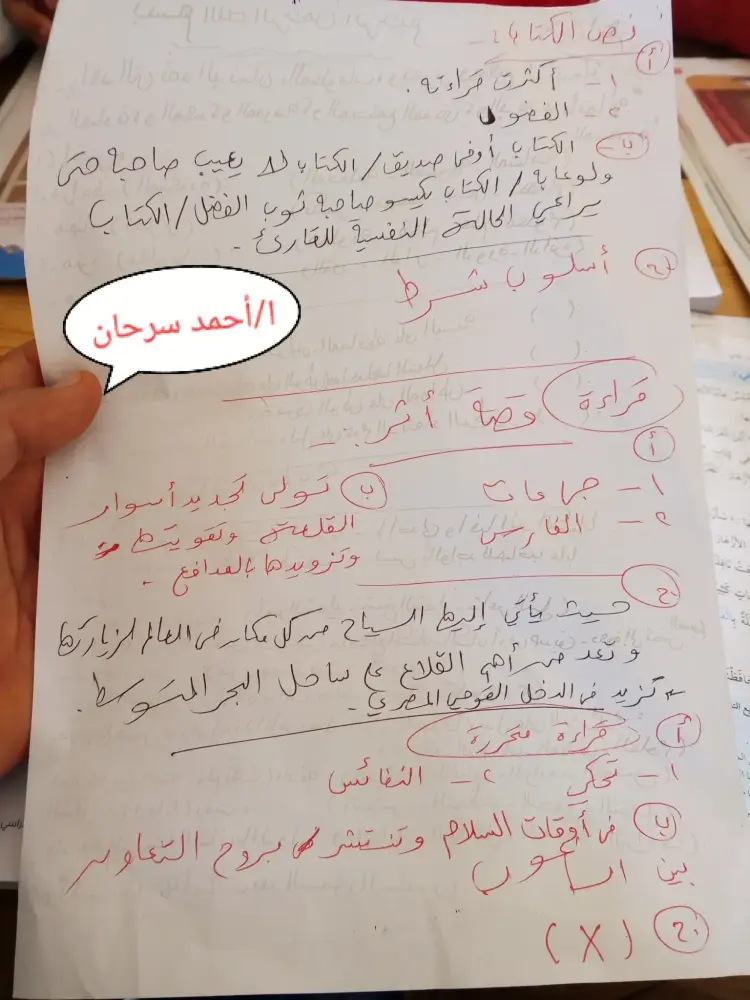 نص الكتاب :-
أ
١- أكثرت قراءته .
٢- الفضول
ب- الكتاب أوفى صديق / الكتاب لا يعيب صاحبه حتى
ولو عابه / الكتاب يكسو صاحبه ثوب الفضل / الكتاب
يراعي الحالة النفسية للقارئ .
ج أسلوب شرط
ا/أحمد سرحان
قراءة قصة أثر
أ
١- جماعات
٢- الفارس
ب تولى تجديد أسوار
القلعة وتقويتها
وتزويدها بالمدافع .
ج
حيث يأتي إليها السياح من كل مكان في العالم لزيارتها
وتعد من أهم القلاع على ساحل البحر المتوسط .
تزيد في الدخل القومي المصري .
قراءة متحررة
أ
١- تحكي ٢- النفائس
ب في أوقات السلام وتنتشر بروح التعاون
بين الشعوب
ج (X)